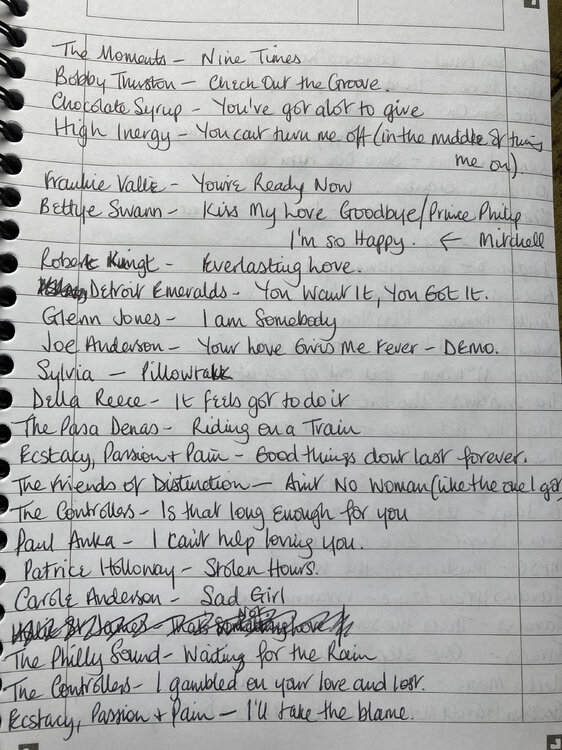 The Moments - Nine Times
Bobby Thurston - Check Out the Groove.
Chocolate Syrup - You've got alot to give
High Inergy - You can't turn me off (in the middle of turning
me on).
Frankie Vallie - You're Ready Now
Bettye Swann - Kiss My Love Goodbye/Prince Philip
I'm so Happy. ← Mitchell
Robert Knight - Everlasting Love.
Detroit Emeralds - You Want It, You Got It.
Glenn Jones - I am Somebody
Joe Anderson - Your Love Gives Me Fever - DEMO.
Sylvia - Pillowtalk
Della Reece - It feels got to do it
The Pasa Denas - Riding on a Train
Ecstacy, Passion + Pain - Good things don't last forever.
The Friends of Distinction - Ain't No Woman (like the one I got
The Controllers - Is that long enough for you
Paul Anka - I can't help loving you.
Patrice Holloway - Stolen Hours.
Carole Anderson - Sad Girl
The Philly Sound - Waiting for the Rain
The Controllers - I gambled on your love and lost.
Ecstacy, Passion + Pain - I'll take the blame.